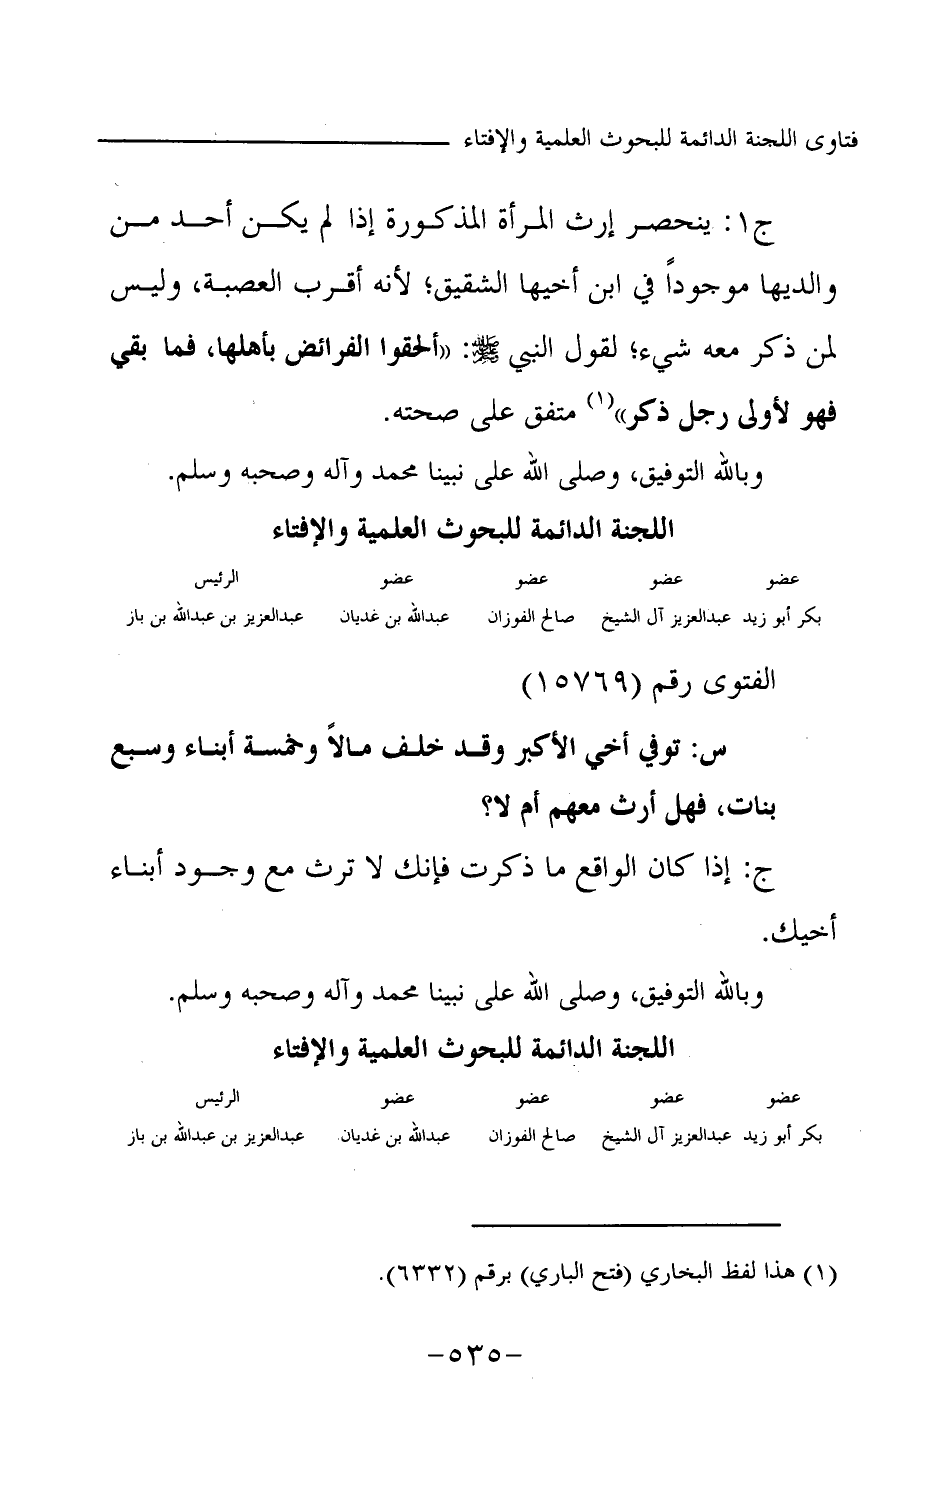 فتاوى اللجنة الدائمة للبحوث العلمية والإفتاء
ج١: ينحصر إرث المرأة المذكورة إذا لم يكن أحد من
والديها موجوداً في ابن أخيها الشقيق؛ لأنه أقرب العصبة، وليس
لمن ذكر معه شيء؛ لقول النبي ﷺ: «ألحقوا الفرائض بأهلها، فما بقي
فهو لأولى رجل ذكر»(١) متفق على صحته.
وبالله التوفيق، وصلى الله على نبينا محمد وآله وصحبه وسلم.
اللجنة الدائمة للبحوث العلمية والإفتاء
عضو عضو عضو عضو الرئيس
بكر أبو زيد عبدالعزيز آل الشيخ صالح الفوزان عبدالله بن غديان عبدالعزيز بن عبدالله بن باز
الفتوى رقم (١٥٧٦٩)
س: توفي أخي الأكبر وقد خلف مالاً وخمسة أبناء وسبع
بنات، فهل أرث معهم أم لا؟
ج: إذا كان الواقع ما ذكرت فإنك لا ترث مع وجود أبناء
أخيك.
وبالله التوفيق، وصلى الله على نبينا محمد وآله وصحبه وسلم.
اللجنة الدائمة للبحوث العلمية والإفتاء
عضو عضو عضو عضو الرئيس
بكر أبو زيد عبدالعزيز آل الشيخ صالح الفوزان عبدالله بن غديان عبدالعزيز بن عبدالله بن باز
(١) هذا لفظ البخاري (فتح الباري) برقم (٦٣٣٢).
-٥٣٥-